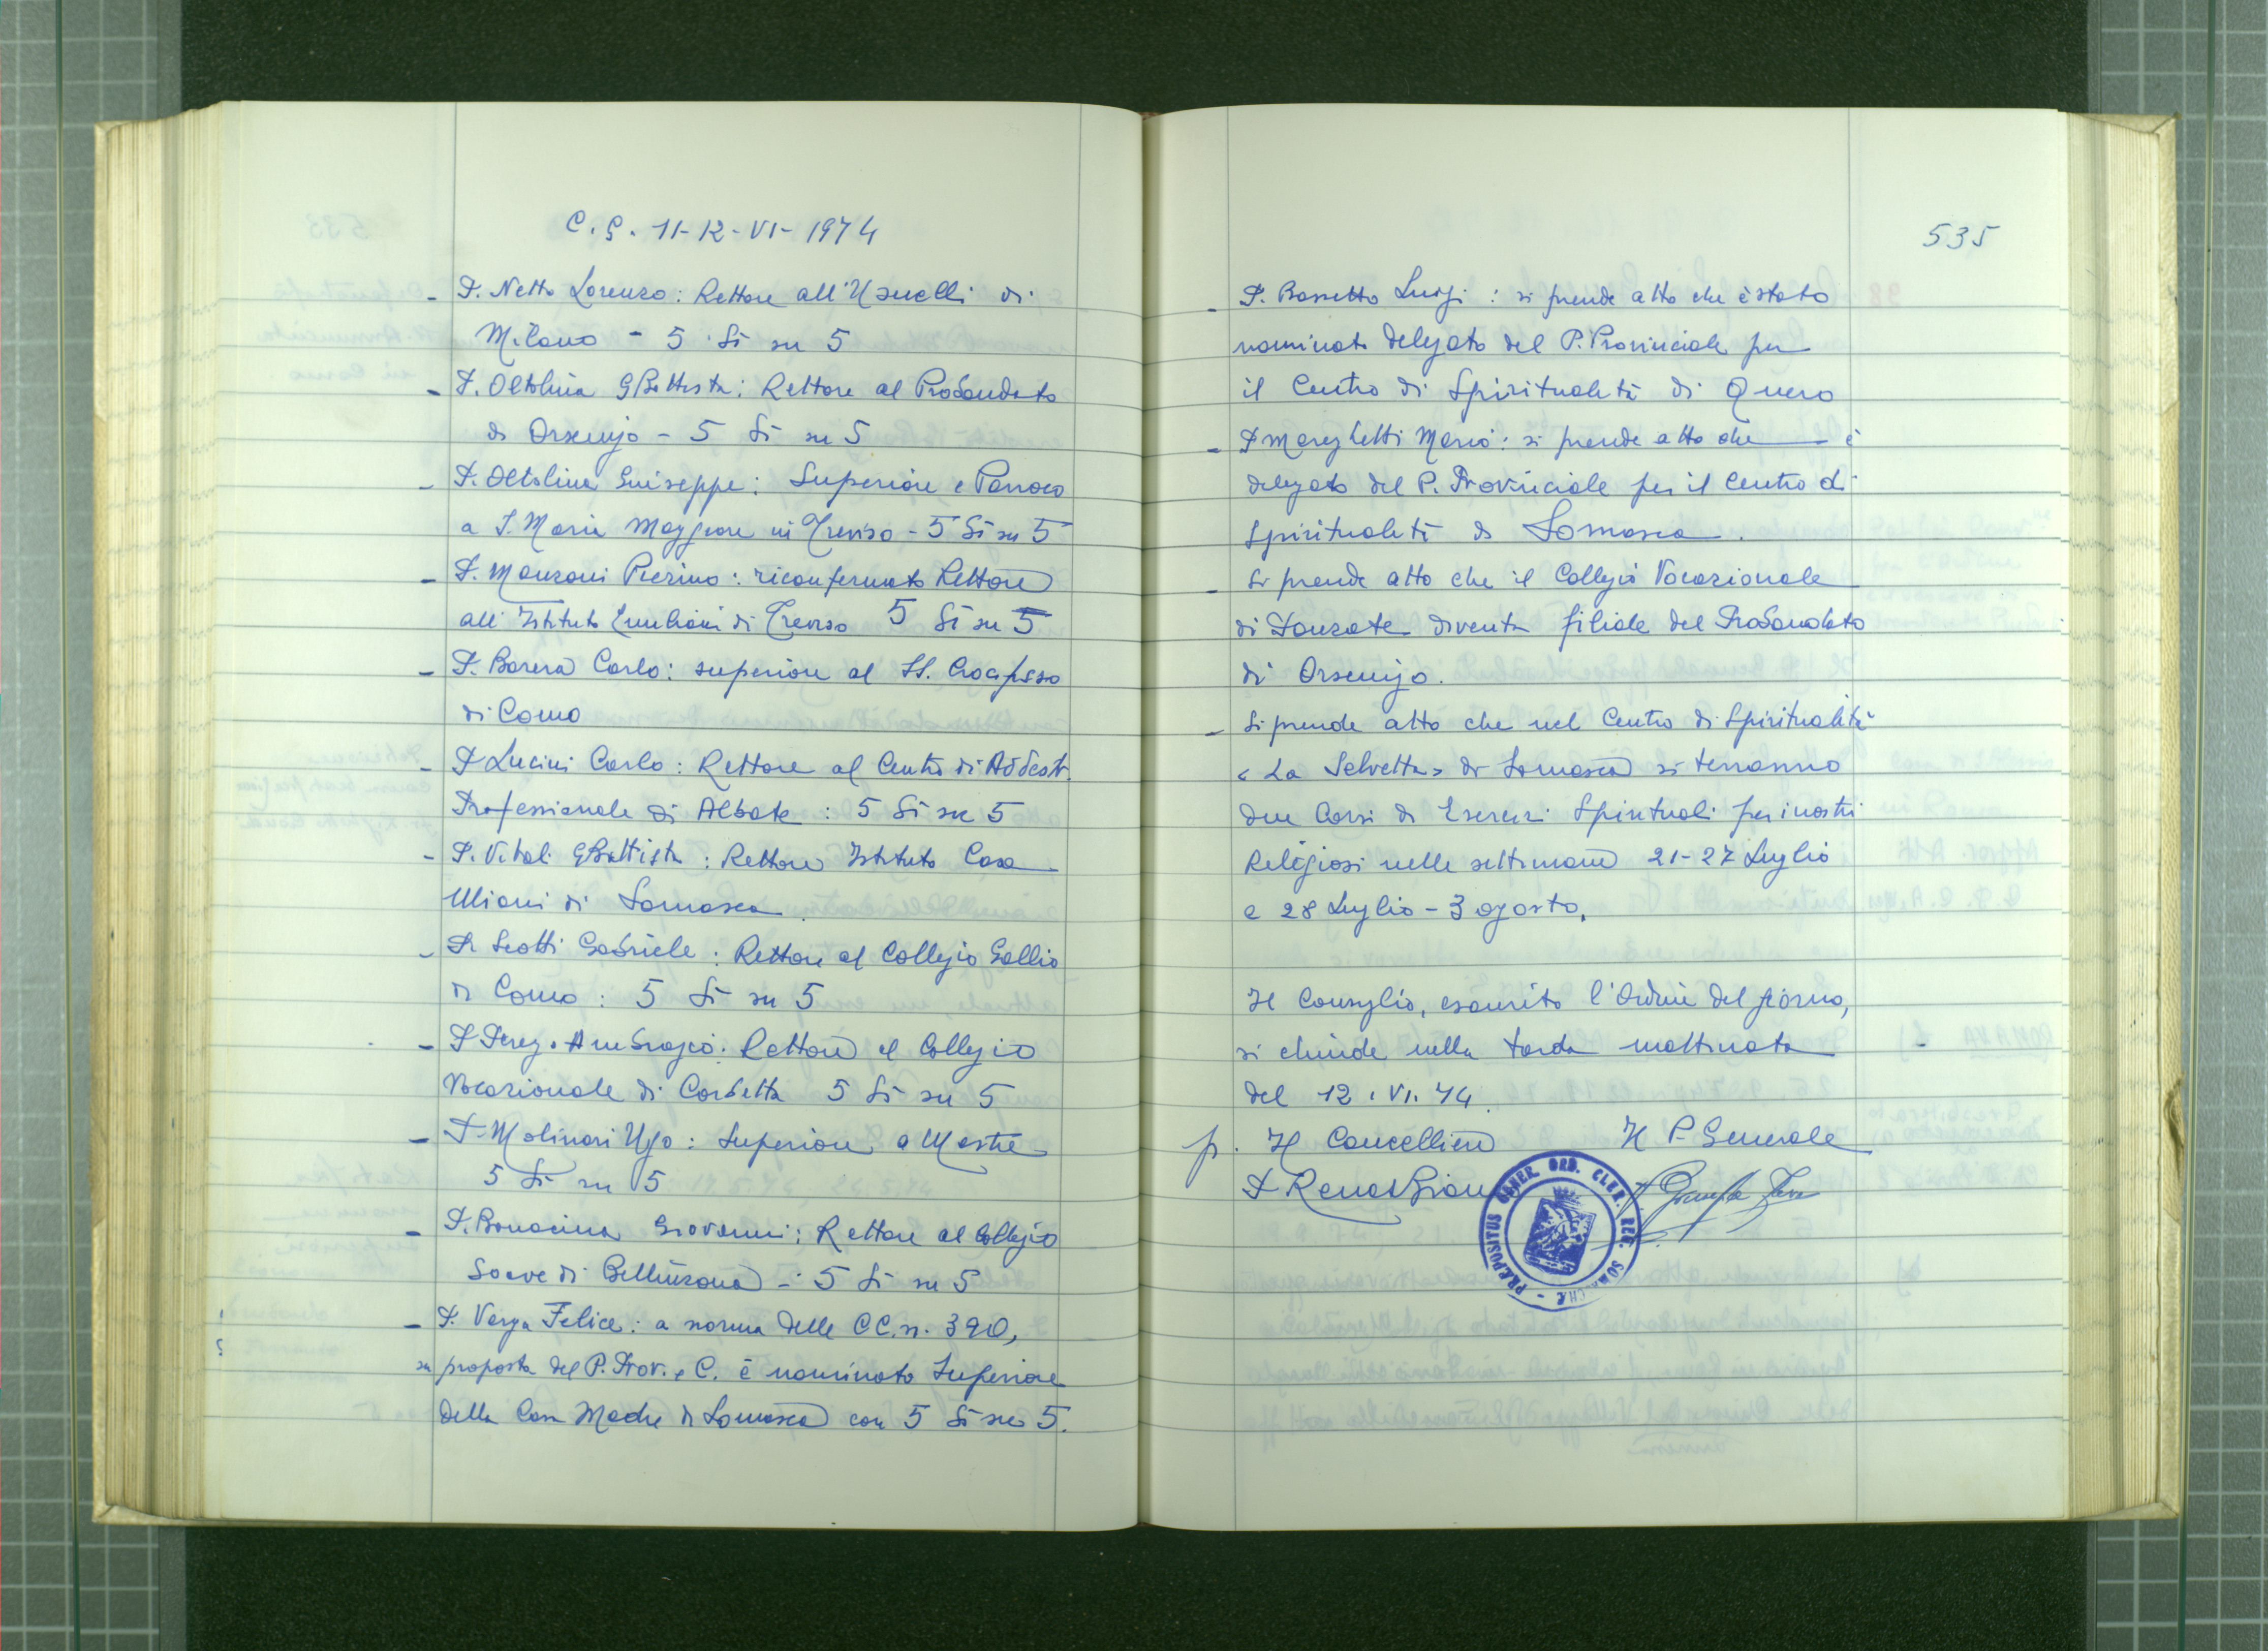 C.G. 11-12-VI-1974
- P. Netto Lorenzo: Rettore all'Usuelli di
Milano - 5 Sì su 5
- P. Oltolina GBattista: Rettore al Probandato
di Orsenigo - 5 Sì su 5
- P. Oltolina Giuseppe: Superiore e Parroco
a S. Maria Maggiore in Treviso - 5 Sì su 5
- P. Manzoni Pierino: riconfermato Rettore
all'Istituto Emiliani di Treviso 5 Sì su 5
- P. Barera Carlo: superiore al SS. Crocifisso
di Como
- P Lucini Carlo: Rettore al Centro di Addestr.
Professionale di Albate: 5 Sì su 5
- P. Vitali GBattista: Rettore Istituto Casa
Miani di Somasca.
- P. Scotti Gabriele: Rettore al Collegio Gallio
di Como: 5 Sì su 5
- P Perego Ambrogio: Rettore al Collegio
Vocazionale di Corbetta 5 Sì su 5
- P. Molinari Ugo: Superiore a Mestre
5 Sì su 5
- P. Bonacina Giovanni: Rettore al Collegio
Soave di Bellinzona - 5 Sì su 5
- P. Verga Felice: a norma delle CC. n. 390,
su proposta del P. Prov. e C. è nominato Superiore
della Casa Madre di Somasca con 5 Sì su 5.
535
- P. Bassetto Luigi: si prende atto che è stato
nominato delegato del P. Provinciale per
il Centro di Spiritualità di Quero
- P Mereghetti Mario: si prende atto che è
delegato del P. Provinciale per il Centro di
Spiritualità di Somasca.
- Si prende atto che il Collegio Vocazionale
di Ponzate diventa filiale del Probandato
di Orsenigo.
- Si prende atto che nel Centro di Spiritualità
"La Selvetta" di Somasca si terranno
due Corsi di Esercizi Spirituali per i nostri
Religiosi nelle settimane 21-27 Luglio
e 28 Luglio - 3 agosto.
Il Consiglio, esaurito l'Ordine del giorno,
si chiude nella tarda mattinata
del 12.VI.74.
p. Il Cancelliere Il P. Generale
P Renato Bianco
PRÆPOSITUS GENER. ORD. CLER. REG. SOMASCHÆ